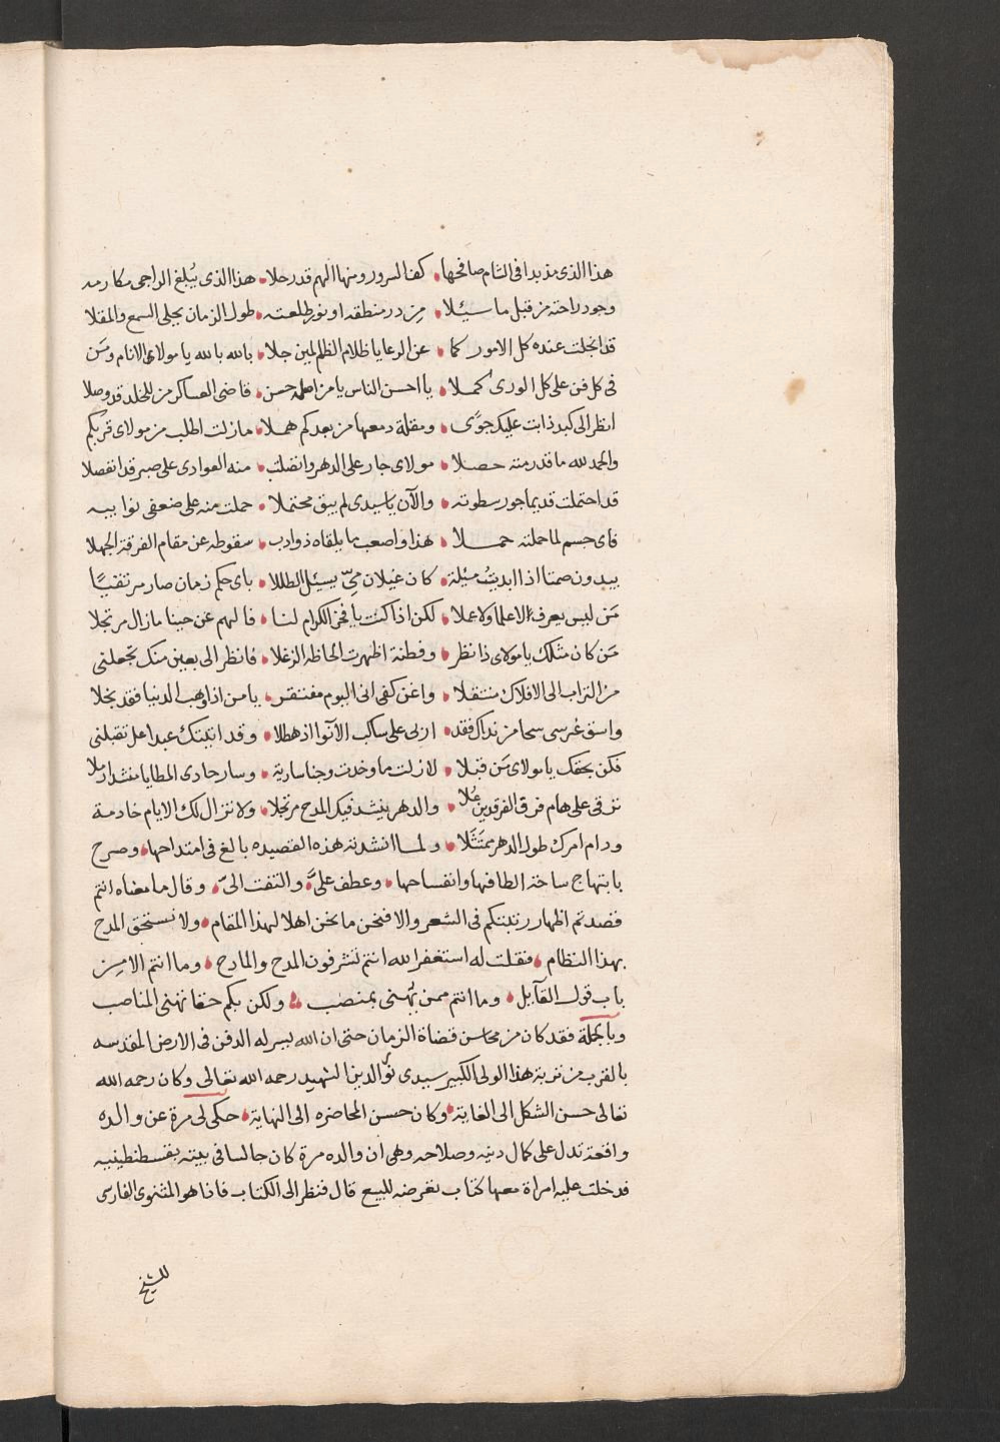 هذا الذى مذ بدا فى الشام صافحها كف السرور ومنها الهم قد رحلا هذا الذى يُبلغ الراجى مكارمه
وجود راحته من قبل ما سيئلا مِن در منطقه او نور طلعته طول الزمان يحلى السمع والمقلا
قد انجلت عنده كل الامور كما عن الرعايا ظلام الظلم لمين جلا بالله بالله يا مولاى الانام ومَن
فى كل فن على كل الورى كملا يا احسن الناس يا من اصله حسن قاضى العساكر من للخلد قد وصلا
انظر الى كبد ذابت عليك جوًى ومقلة دمعها من بعدكم هملا ما زلت اطلب من مولاى قربكم
والحمد لله ما قدرمته حصلا مولاى جار على الدهر وانفلت منه العوادى على صبر قد انفصلا
قد احتملت قديما جور سطوته والآن يا سيدى لم يبق محتملا حملت منه على ضعفى نوايبه
فاى جسم لما حملته حملا هذا واصعب ما يلقاه ذو ادب سقوطه عن مقام الفرقة الجهلا
يبدون صمتا اذا ابديت مسئلة كان غيلان مىّ يسئل الطللا باى حكم زمان صار مرتقيًا
مَن ليس يعرف الا علما ولا عملا لكن اذا كنت يا فخر الكرام لنا فالهم عن حينا ما زال مرتجلا
مَن كان مثلك يا مولاى ذا نظر وفطنة اظهرت الحاظه الزغلا فانظر الى بعين منك تجعلنى
من التراب الى الافلاك منتقلا واغن كفى انى اليوم مفتقر يا من اذا وهب الدنيا فقد بخلا
واسق غرسى سحا من نداك فقد ازلى على ساكب الآنوا اذ هطلا وقد اتيتك عبدا هل تقبلنى
فكن بحقك يا مولاى مَن قبلا لا زلت ما وخدت وجنا سارية وسار حادى المطايا منشدا رملا
ترقى على هام فرق الفرقدين عُلا والدهر ينشد فيك المدح مرتجلا ولا تزال لك الايام خادمة
ورام امرك طول الدهر ممتَثَلا ولما انشدته هذه القصيده بالغ فى امتداحها وصرح
بابتهاج ساحة الطافها وانفساحها وعطف علىَّ والتفت الىّ وقال ما معناه انتم
قصدتم اظهار رتبتكم فى الشعر والا فنحن ما نحن اهلا لهذا المقام ولا نستحق المدح
بهذا النظام فقلت له استغفر الله انتم تشرفون المدح والمادح وما انتم الا مِن
باب قول القآيل وما انتم ممن يُهنى بمنصب ولكن بكم حقا تهنى المناصب
وبالجملة فقد كان من محاسن قضاة الزمان حتى ان الله يسر له الدفن فى الارض المقدسه
بالقرب من تربة هذا الولى الكبير سيدى نور الدين الشهيد رحمه الله تعالى وكان رحمه الله
تعالى حسن الشكل الى الغاية وكان حسن المحاضره الى النهاية حكى لى مرة عن والده
واقعة تدل على كمال دينه وصلاحه وهى ان والده مرة كان جالسا فى بيته بقسطنطينيه
فدخلت عليه امراة معها كتاب تعرضه للبيع قال فنظر الى الكتاب فاذا هو المثنوى الفارسى
للشيخ